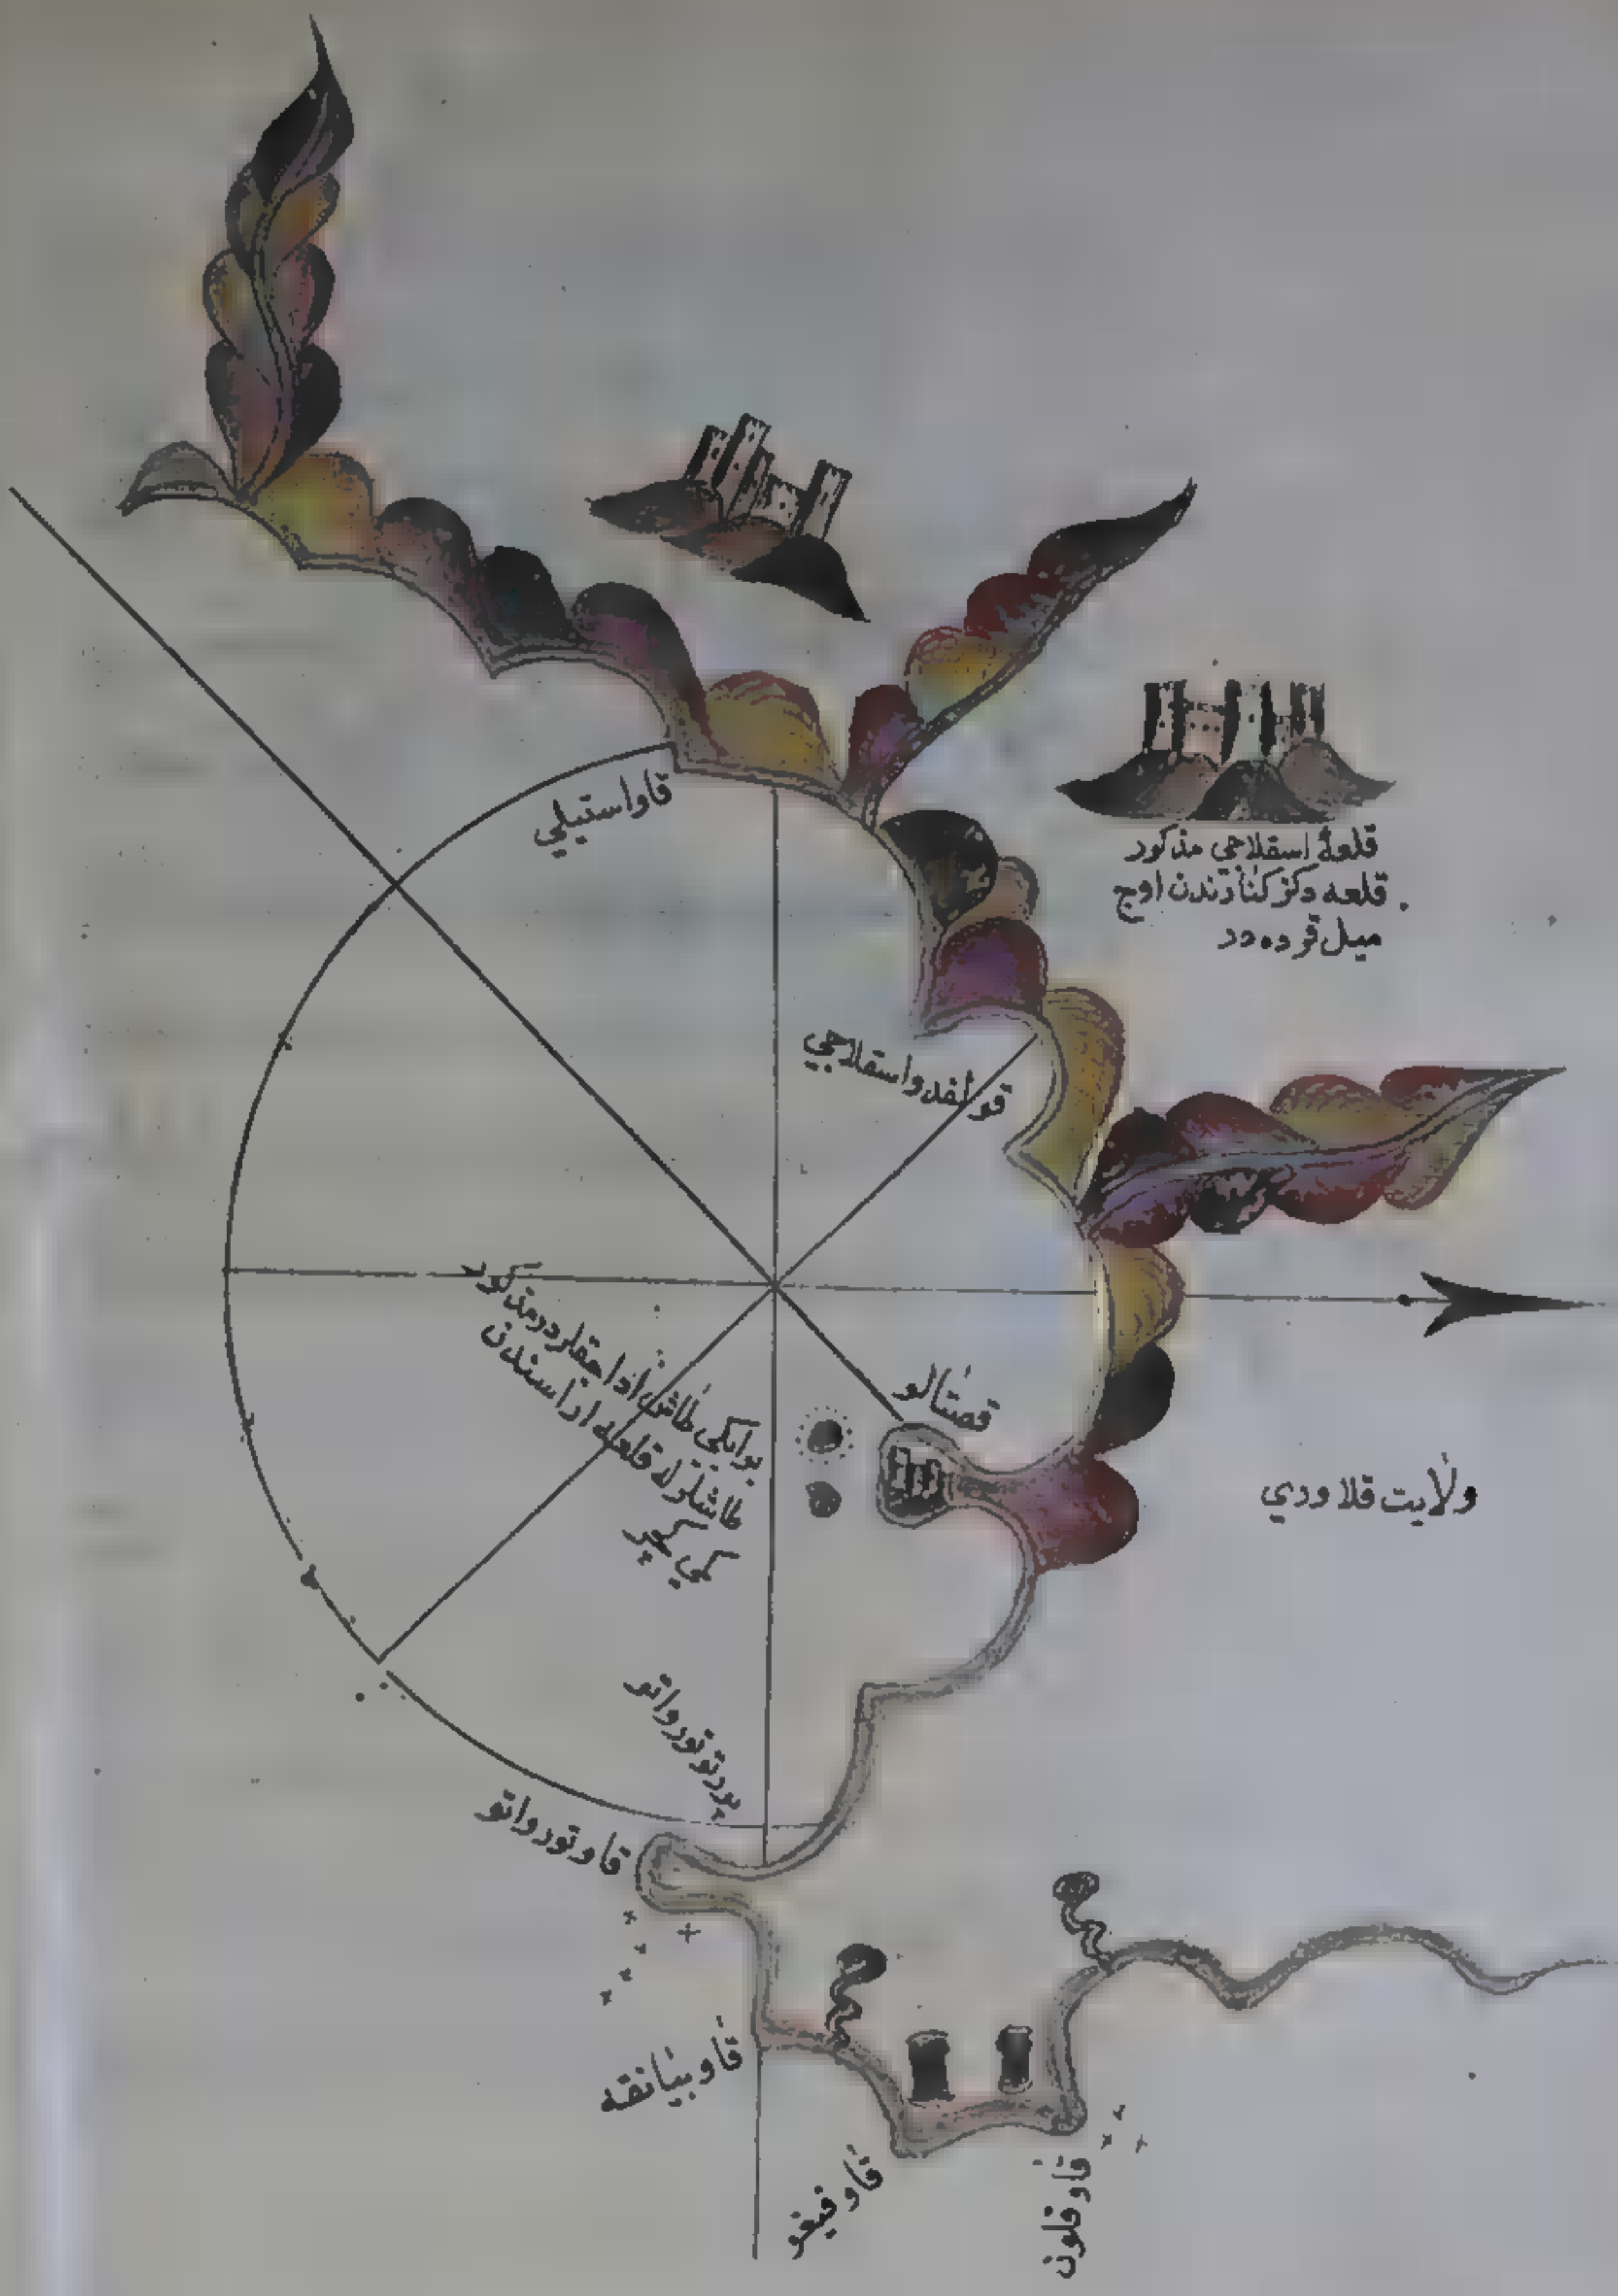 قاواستيلي
قلعهٔ اسقلاجي مذكور
قلعه دكز كنارندن اوج
ميل قرده در
قولفدواسقلاجي
قصتالو
بوايكي طاش اداجقلردرمذكور
طاشلرله قلعه اراسندن
كمي كچر
ولايت قلاوري
پورتوتورواتو
قاوتورواتو
قاوبيانقه
قاوفيغو
قاوقلون